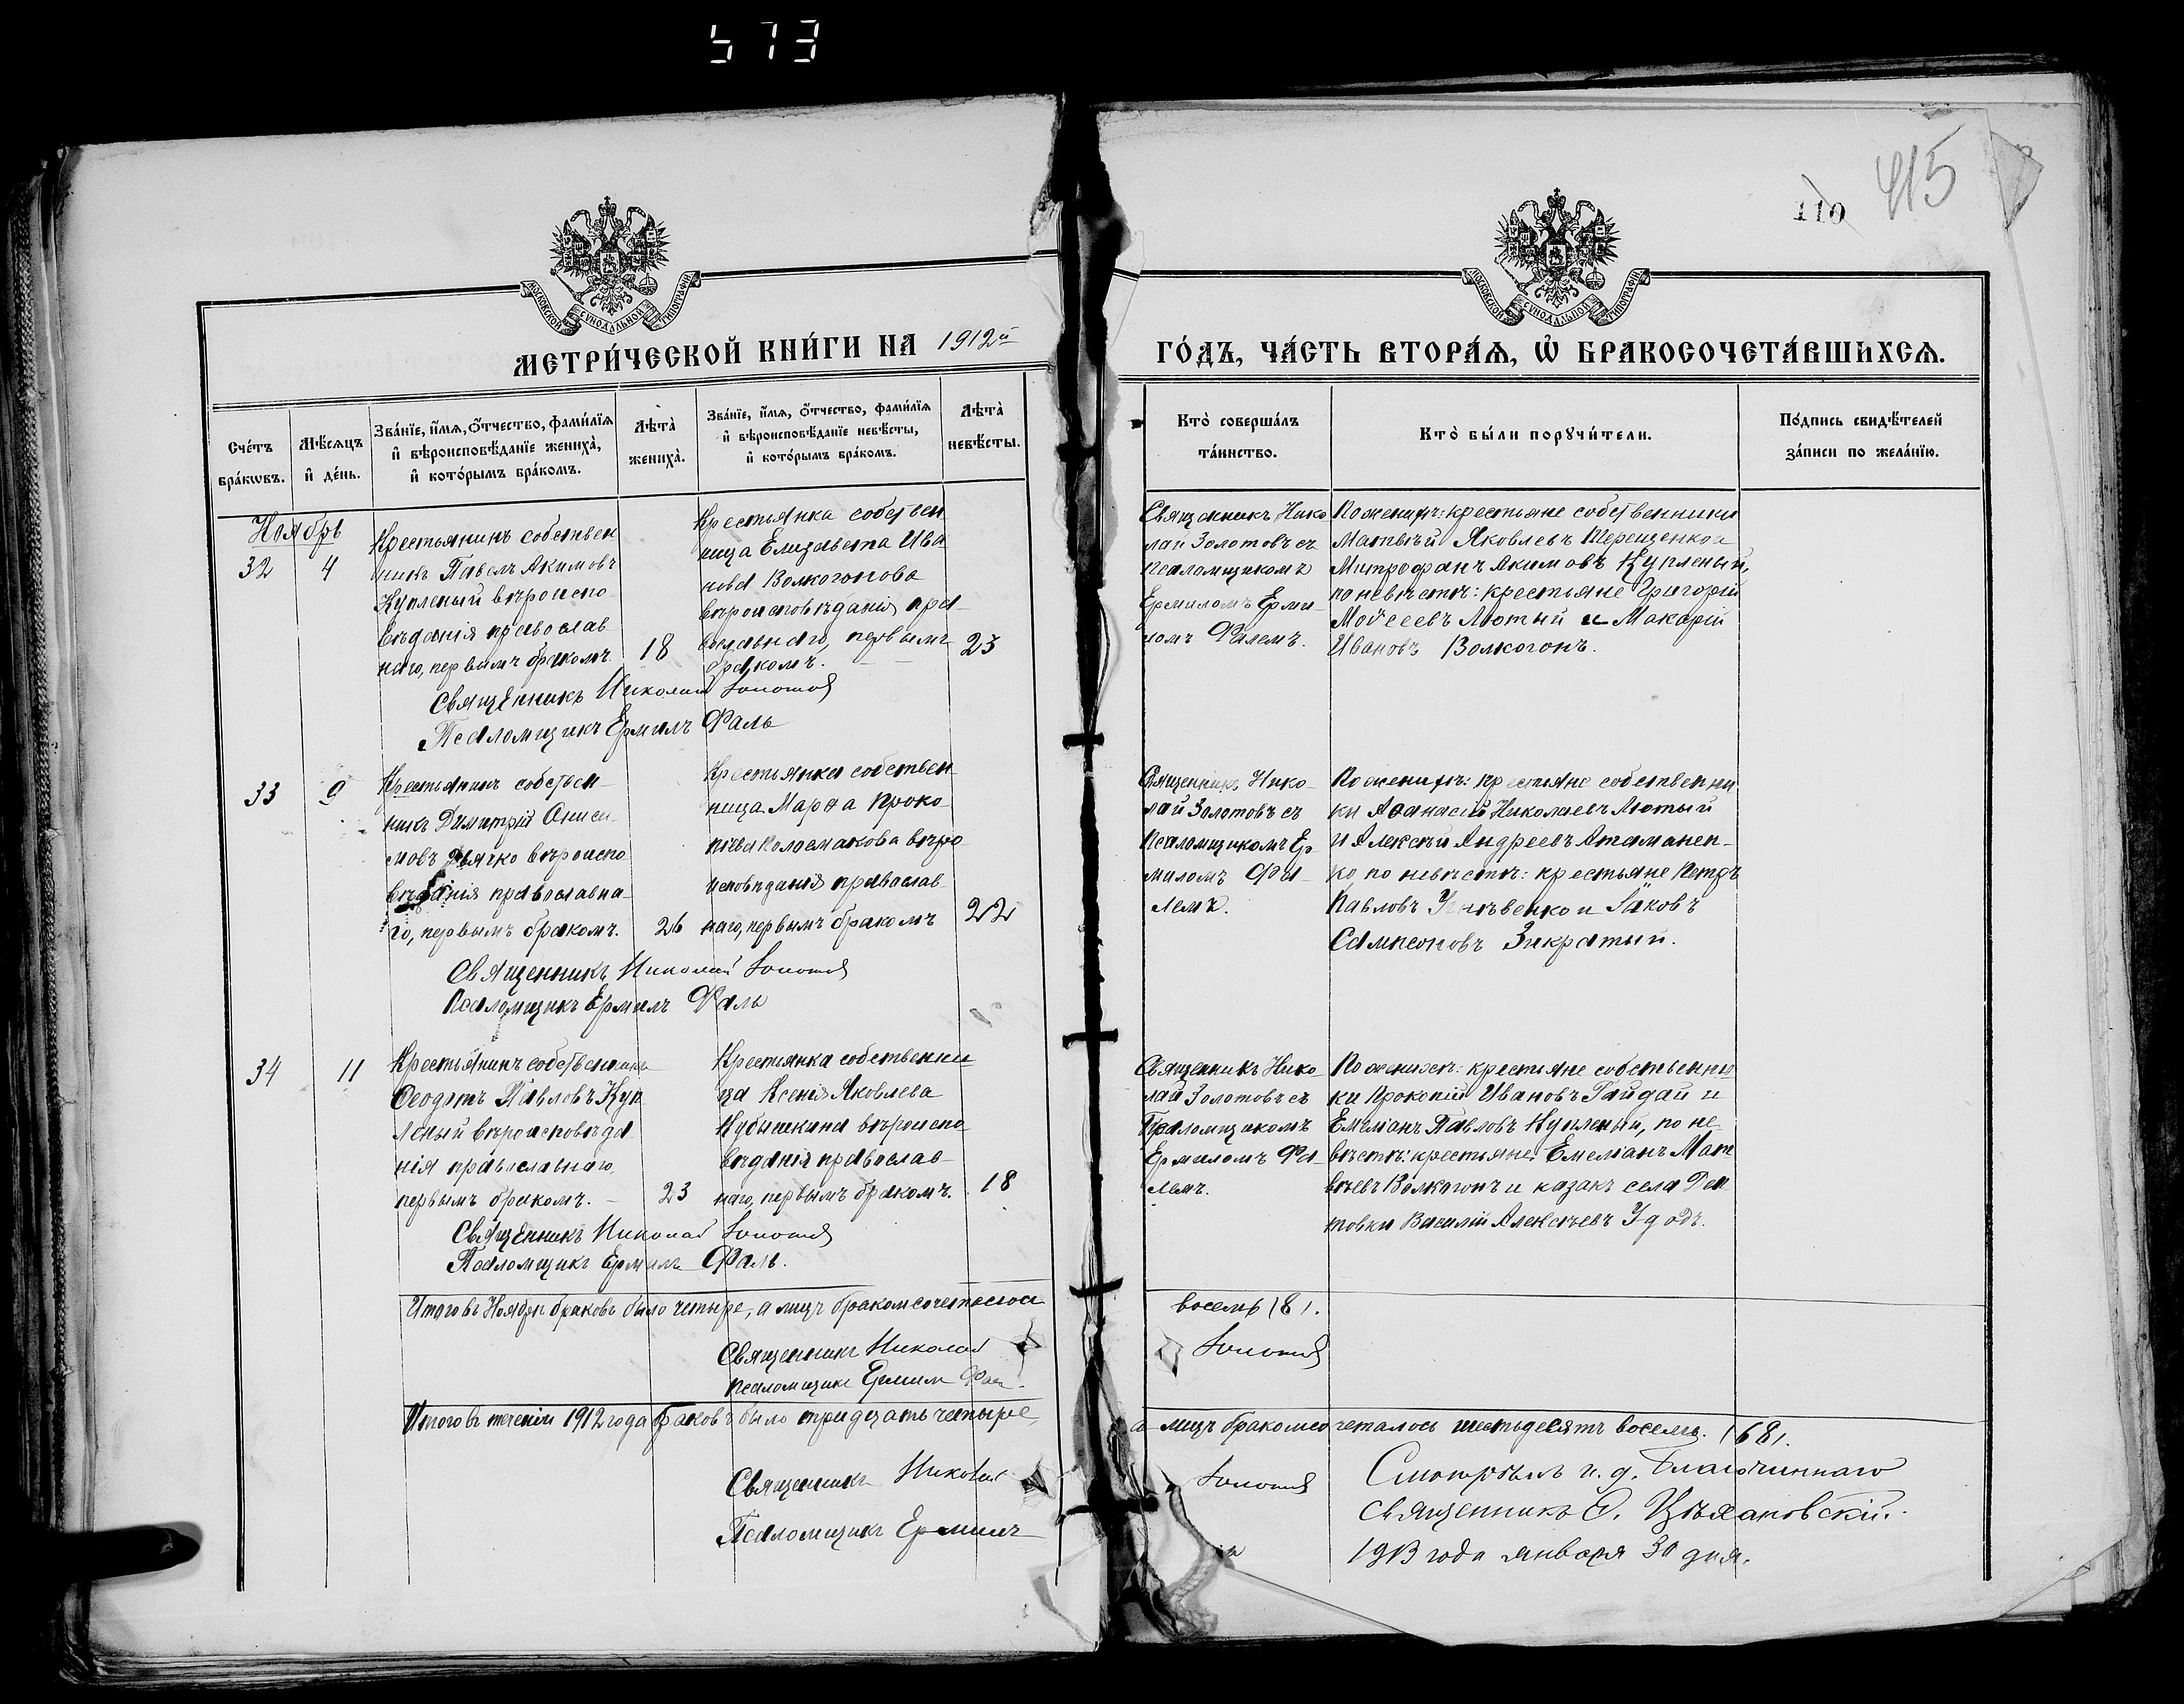 573
110
415
МОСКОВСКОЙ СѴНОДАЛЬНОЙ ТИПОГРАФІИ
МОСКОВСКОЙ СѴНОДАЛЬНОЙ ТИПОГРАФІИ
МЕТРИ́ЧЕСКОЙ КНИ́ГИ НА 1912й
ГО́ДЪ, ЧА́СТЬ ВТОРА́Я, Ѡ БРАКОСОЧЕТА́ВШИХСЯ.
Сче́тъ бра́кѡвъ.
Мѣ́сяцъ и де́нь.
Зва́нїе, и́мя, о́тчество, фами́лїя
и вѣроисповѣ́данїе жениха̀,
и кото́рымъ бра́комъ.
Лѣта̀ жениха̀.
Зва́нїе, и́мя, о́тчество, фами́лїя
и вѣроисповѣ́данїе невѣ́сты,
и кото́рымъ бра́комъ.
Лѣта̀ невѣ́сты.
Кто̀ соверша́лъ
та́инство.
Кто̀ бы́ли порꙋчи́тели.
По́дпись свидѣ́телей
за́писи по жела́нїю.
Ноябрь
32
4
Крестьянинъ собствен
никъ Павелъ Акимовъ
Купленый вѣроиспо
вѣданія православ
наго, первымъ бракомъ.
18
Крестьянка собствен
ница Елизавета Ива
нова Волкогонова
вѣроисповѣданія пра
вославнаго, первымъ
бракомъ.
23
Священникъ Нико
лай Золотовъ съ
псаломщикомъ
Ермиломъ
Фалемъ.
По женихѣ: крестьяне собственники
Матвѣй Яковлевъ Терещенко и
Митрофанъ Акимовъ Купленый,
по невѣстѣ: крестьяне Григорій
Мойсеевъ Лютый и Макарій
Ивановъ Волкогонъ.
Священникъ Николай Золотовъ
Псаломщикъ Ермилъ Фаль
33
9
Крестьянинъ собствен
никъ Димитрій Ониси
мовъ Дьячко вѣроиспо
вѣданія православна
го, первымъ бракомъ.
26
Крестьянка собствен
ница Марфа Проко
піева Коломакова вѣро
исповѣданія православ
наго, первымъ бракомъ
22
Священникъ Нико
лай Золотовъ съ
псаломщикомъ Ер
миломъ Фа
лемъ.
По женихѣ: крестьяне собственни
ки Афанасій Николаевъ Лютый
и Алексѣй Андреевъ Атаманен
ко по невѣстѣ: крестьяне Петръ
Павловъ и Іаковъ
Сампсоновъ Закратый.
Священникъ Николай Золотовъ
Псаломщикъ Ермилъ Фаль
34
11
Крестьянинъ собственникъ
Феодотъ Павловъ Куп
леный вѣроисповѣда
нія православнаго,
первымъ бракомъ.
23
Крестьянка собственни
ца Ксенія Яковлева
Кубышкина вѣроиспо
вѣданія православ
наго, первымъ бракомъ.
18
Священникъ Нико
лай Золотовъ съ
Псаломщикомъ
Ермиломъ Фа
лемъ.
По женихѣ: крестьяне собственни
ки Прокопій Ивановъ Гайдай и
Емеліанъ Павловъ Купленый, по не
вѣстѣ: крестьяне: Емеліанъ Мат
вѣевъ Волкогонъ и казакъ села
Василій Алексѣевъ Удодъ.
Священникъ Николай Золотовъ
Псаломщикъ Ермилъ Фаль.
Итого въ Ноябрѣ браковъ было четыре, а лицъ бракомсочеталось восемь /8/.
Священникъ Николай Золотовъ
Псаломщикъ Ермилъ Фаль
Итого въ теченіи 1912 года браковъ было тридцать четыре,
а лицъ бракомсочеталось шестьдесятъ восемь. /68/.
Священникъ Николай Золотовъ
Псаломщикъ Ермилъ
Смотрѣлъ и. д. Благочиннаго
священникъ
1913 года января 30 дня.